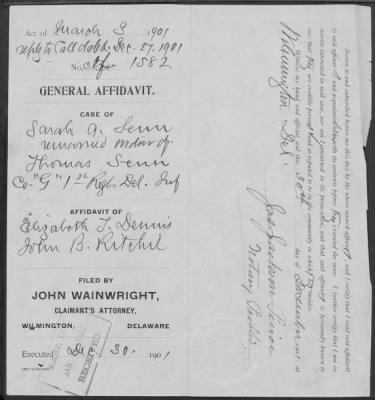 Act of March 3, 1901
reply to Call dated, Dec. 27, 1901
No. Ctf 1582
GENERAL AFFIDAVIT.
CASE OF
Sarah A. Senn
remarried widow of
Thomas Senn
Co "G" 1st Regt. Del. Inf
AFFIDAVIT OF
Elizabeth T. Dennis
John B. Ritchie
FILED BY
JOHN WAINWRIGHT,
CLAIMANT'S ATTORNEY,
WILMINGTON, DELAWARE
Executed Dec. 30. 1901
JAN
RECEIVED.
Sworn to and subscribed before me this day by the above named affiants, and I certify that I read said affidavit
to said affiants, and acquainted them with its contents before they executed the same. I further certify that I am in
nowise interested in said case, nor am I concerned in its prosecution, and that said affiants is personally known to
me, that they are credible persons and so reputed to be in the community in which they resides.
Witness my hand and official seal this 30th day of December 1901 at
Wilmington Del.
Notary Public